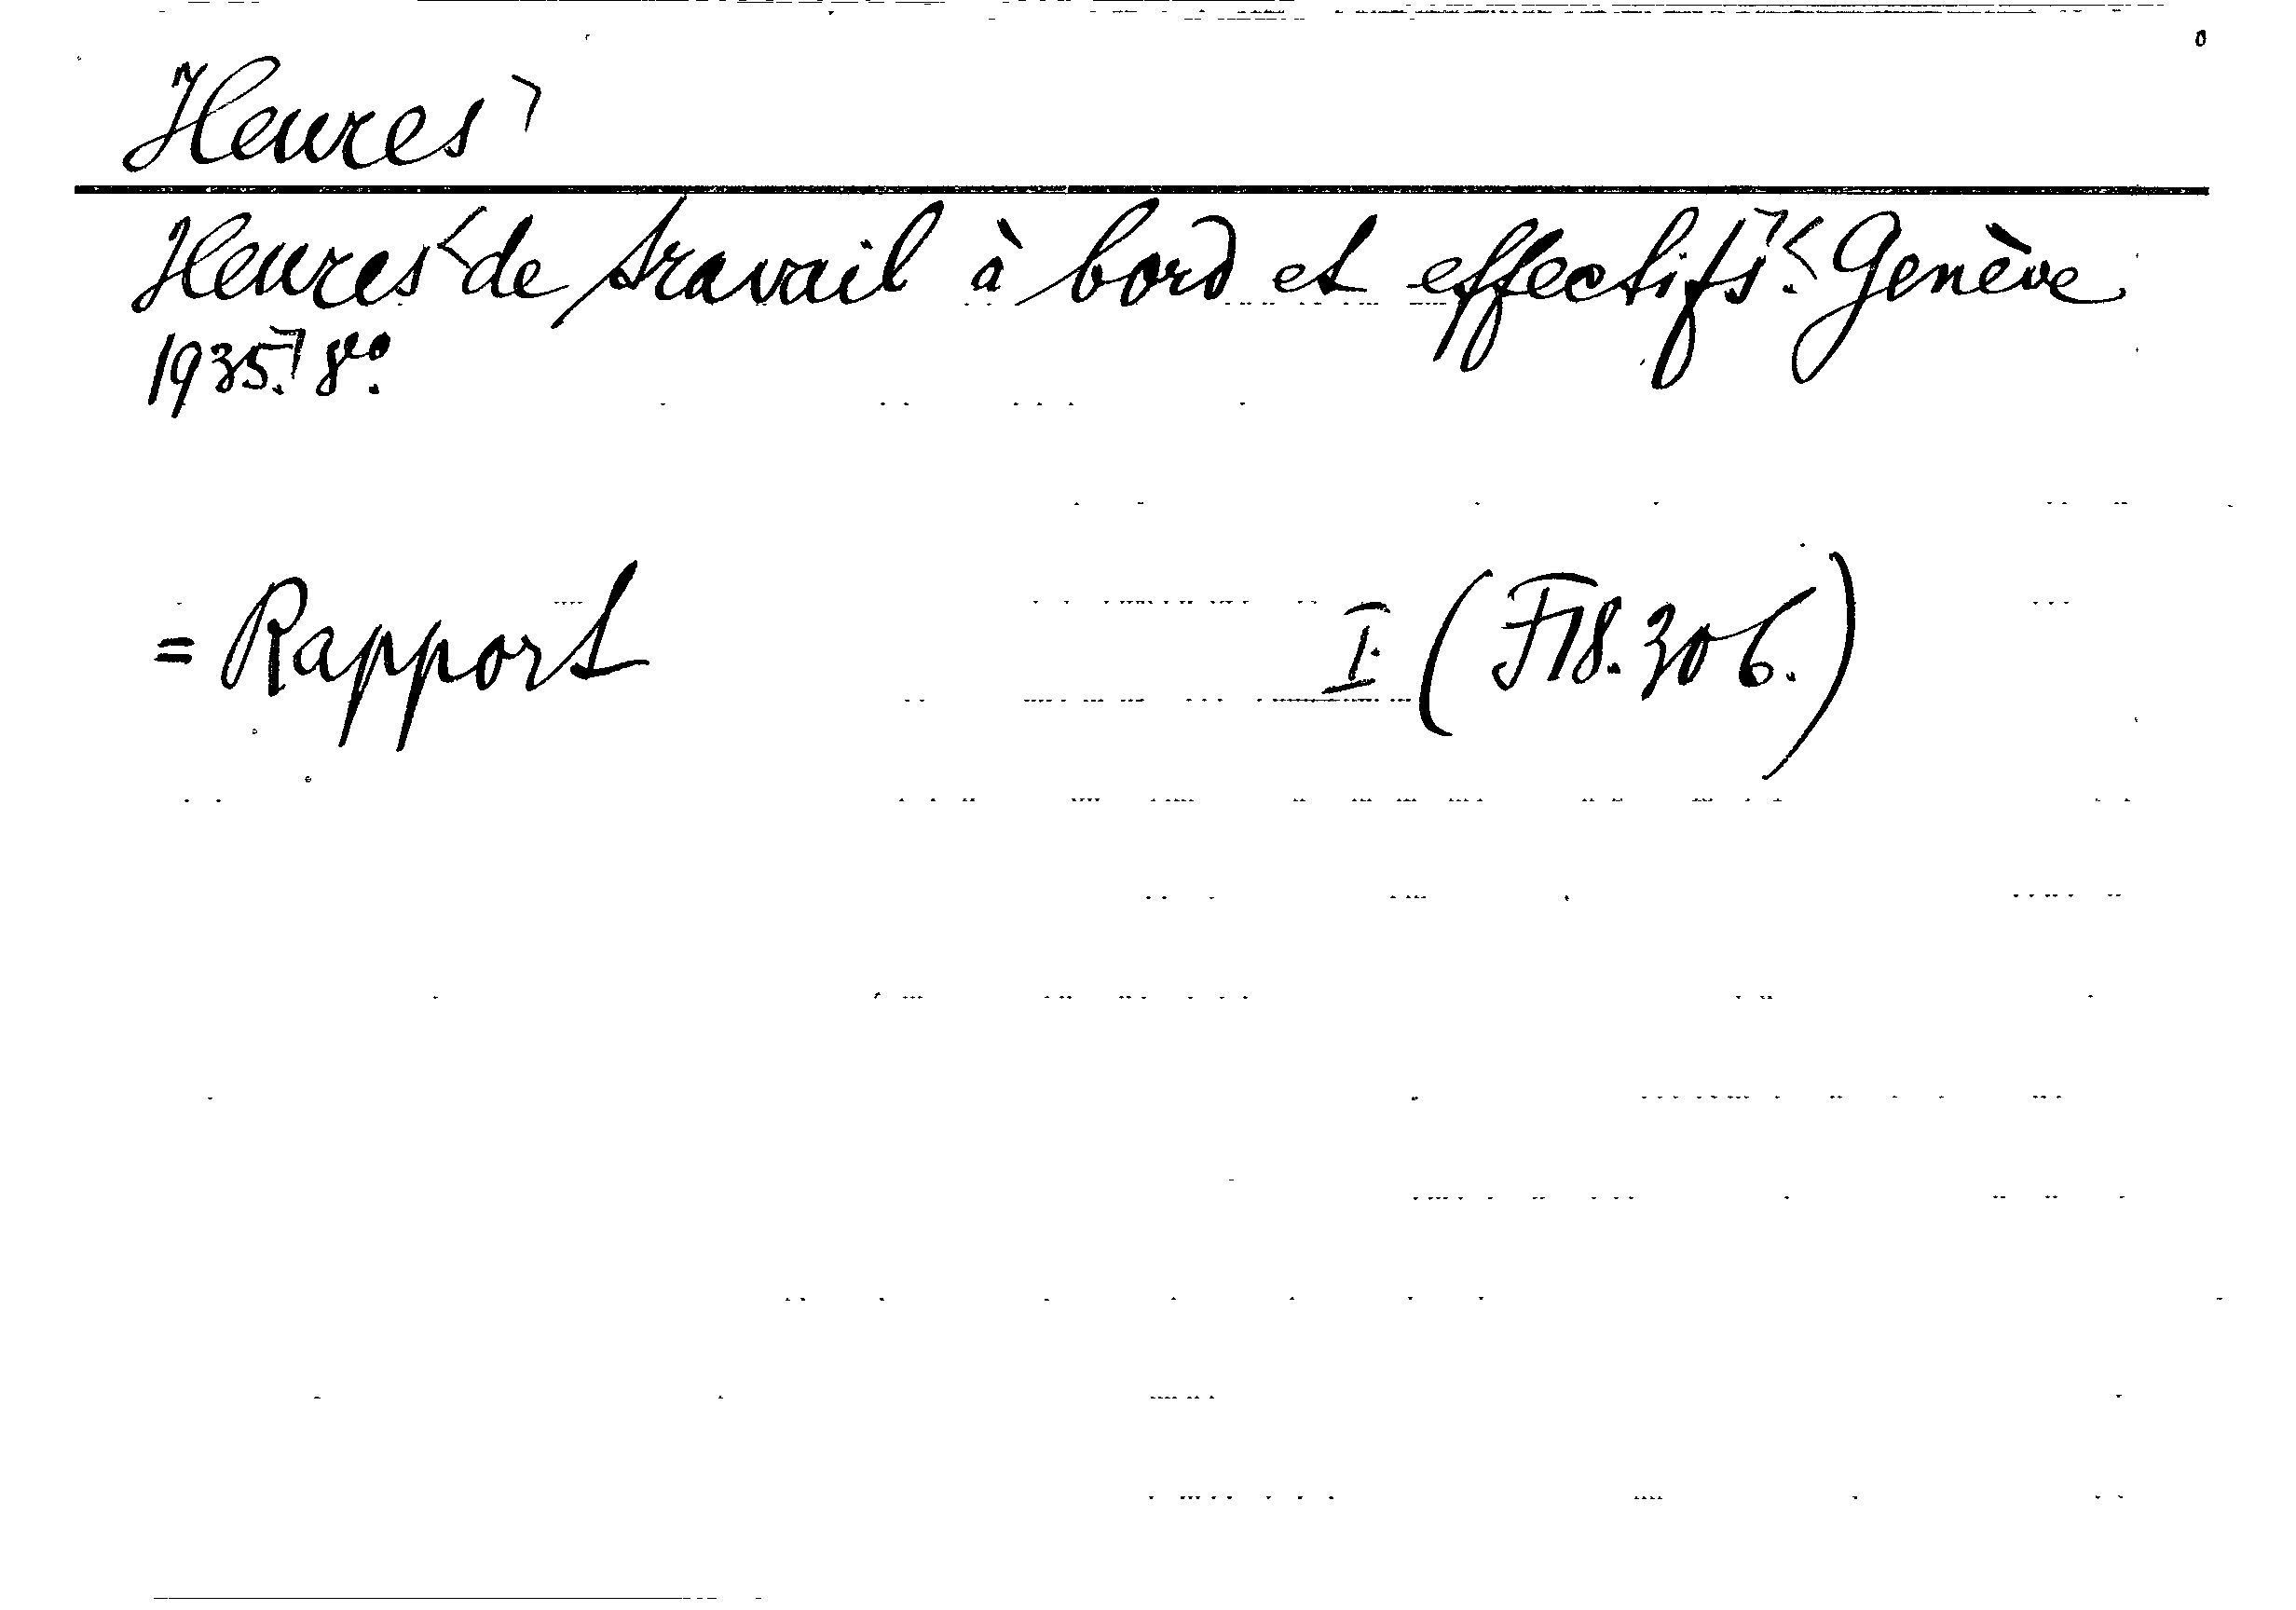 Heures
Heures de travail à bord et effectifs. Genève
1935. 8vo.
= Rapport I (F18.306.)